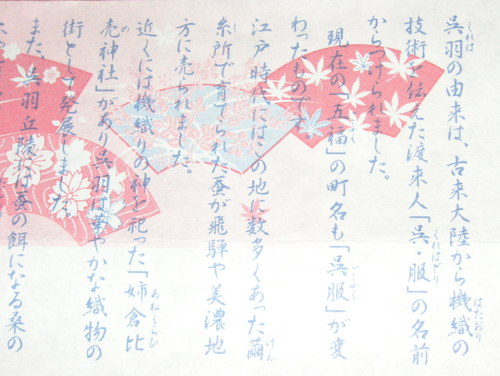 呉羽の由来は、古来大陸から機織の
技術を伝えた渡来人「呉・服」の名前
からつけられました。
現在の「五福」の町名も「呉服」が変
わったものです。
江戸時代にはこの地に数多くあった繭
糸所で育てられた蚕が飛騨や美濃地
方に売られました。
近くには機織りの神を祀った「姉倉比
売神社」があり呉羽は華やかな織物の
街として発展しました。
また、呉羽丘陵では蚕の餌になる桑の